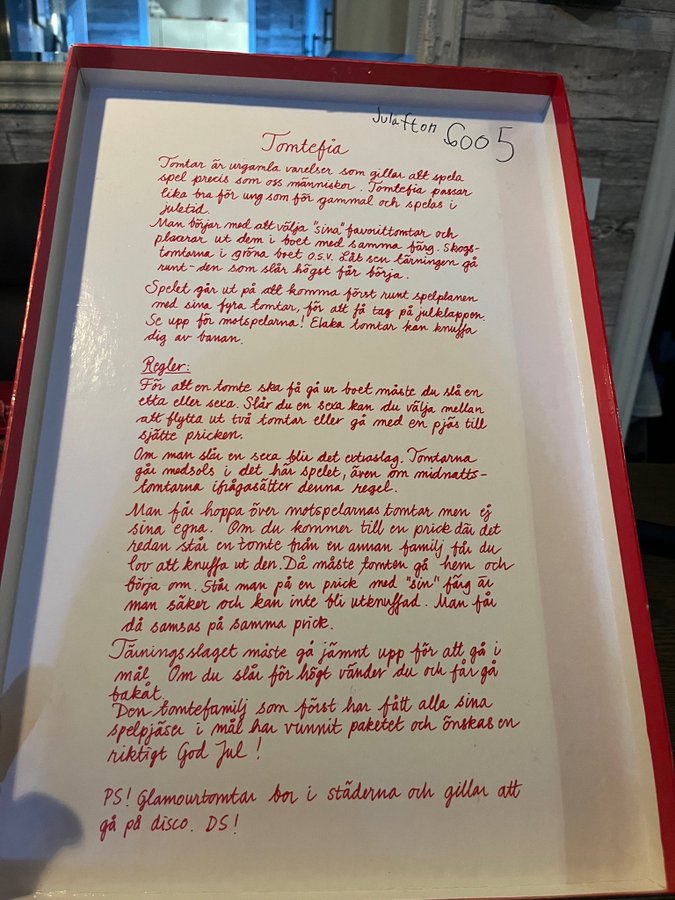 Julafton 6005
Tomtefia
Tomtar är urgamla varelser som gillar att spela
spel precis som oss människor. Tomtefia passar
lika bra för ung som för gammal och spelas i
juletid.
Man börjar med att välja "sina" favorittomtar och
placerar ut dem i boet med samma färg. Skogs-
tomtarna i gröna boet o.s.v. Låt sen tärningen gå
runt - den som slår högst får börja.
Spelet går ut på att komma först runt spelplanen
med sina fyra tomtar, för att få tag på julklappen.
Se upp för motspelarna! Elaka tomtar kan knuffa
dig av banan.
Regler:
För att en tomte ska få gå ur boet måste du slå en
etta eller sexa. Slår du en sexa kan du välja mellan
att flytta ut två tomtar eller gå med en pjäs till
sjätte pricken.
Om man slår en sexa blir det extraslag. Tomtarna
går medsols i det här spelet, även om midnatts-
tomtarna ifrågasätter denna regel.
Man får hoppa över motspelarnas tomtar men ej
sina egna. Om du kommer till en prick där det
redan står en tomte från en annan familj får du
lov att knuffa ut den. Då måste tomten gå hem och
börja om. Står man på en prick med "sin" färg är
man säker och kan inte bli utknuffad. Man får
då samsas på samma prick.
Tärningsslaget måste gå jämnt upp för att gå i
mål. Om du slår för högt vänder du och får gå
bakåt.
Den tomtefamilj som först har fått alla sina
spelpjäser i mål har vunnit paketet och önskas en
riktigt God Jul!
PS! Glamourtomtar bor i städerna och gillar att
gå på disco. DS!